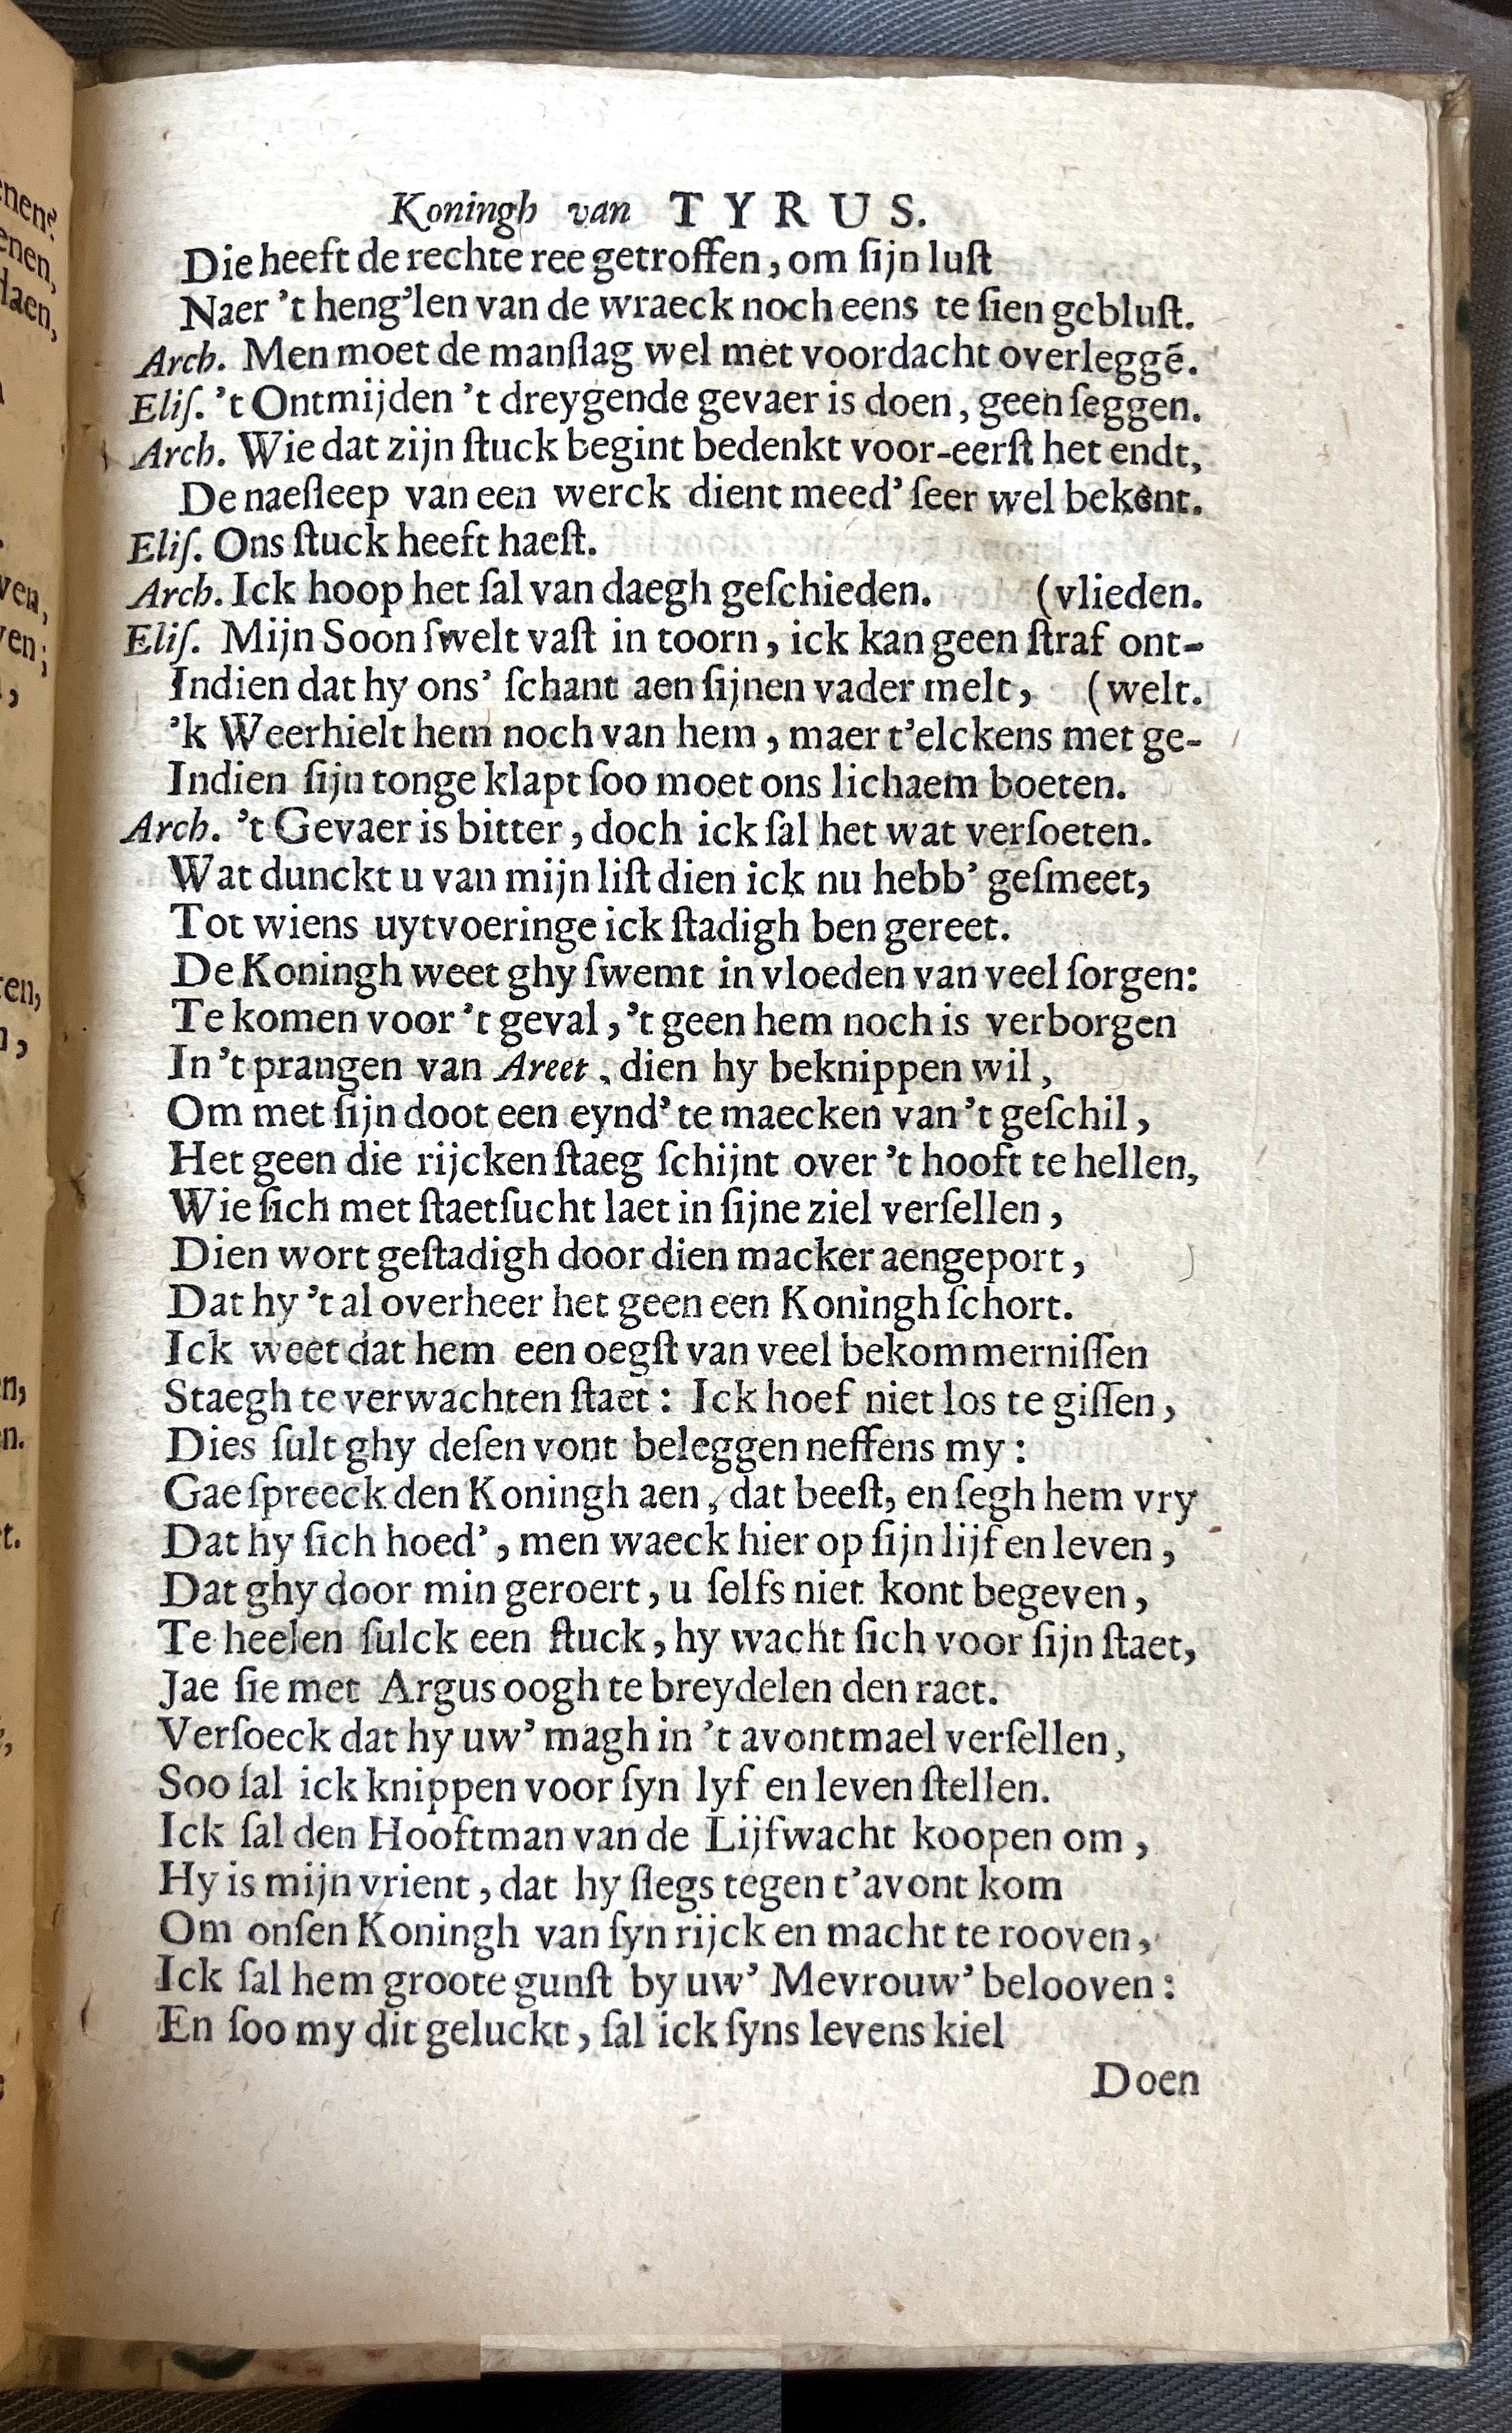 Koningh van TYRUS.
Die heeft de rechte ree getroffen, om ſijn luſt
Naer 't heng'len van de wraeck noch eens te ſien gebluſt.
Arch. Men moet de manſlag wel met voordacht overleggē.
Eliſ. 't Ontmijden 't dreygende gevaer is doen, geen ſeggen.
Arch. Wie dat zijn ſtuck begint bedenkt voor-eerſt het endt,
De naeſleep van een werck dient meed' ſeer wel bekent.
Eliſ. Ons ſtuck heeft haeſt.
Arch. Ick hoop het ſal van daegh geſchieden. (vlieden.
Eliſ. Mijn Soon ſwelt vaſt in toorn, ick kan geen ſtraf ont-
Indien dat hy ons' ſchant aen ſijnen vader melt, (welt.
'k Weerhielt hem noch van hem, maer t'elckens met ge-
Indien ſijn tonge klapt ſoo moet ons lichaem boeten.
Arch. 't Gevaer is bitter, doch ick ſal het wat verſoeten.
Wat dunckt u van mijn liſt dien ick nu hebb' geſmeet,
Tot wiens uytvoeringe ick ſtadigh ben gereet.
De Koningh weet ghy ſwemt in vloeden van veel ſorgen:
Te komen voor 't geval, 't geen hem noch is verborgen
In 't prangen van Areet, dien hy beknippen wil,
Om met ſijn doot een eynd' te maecken van 't geſchil,
Het geen die rijcken ſtaeg ſchijnt over 't hooft te hellen,
Wie ſich met ſtaetſucht laet in ſijne ziel verſellen,
Dien wort geſtadigh door dien macker aengeport,
Dat hy 't al overheer het geen een Koningh ſchort.
Ick weet dat hem een oegſt van veel bekommerniſſen
Staegh te verwachten ſtaet: Ick hoef niet los te giſſen,
Dies ſult ghy deſen vont beleggen neffens my:
Gae ſpreeck den Koningh aen, dat beeſt, en ſegh hem vry
Dat hy ſich hoed', men waeck hier op ſijn lijf en leven,
Dat ghy door min geroert, u ſelfs niet kont begeven,
Te heelen ſulck een ſtuck, hy wacht ſich voor ſijn ſtaet,
Jae ſie met Argus oogh te breydelen den raet.
Verſoeck dat hy uw' magh in 't avontmael verſellen,
Soo ſal ick knippen voor ſyn lyf en leven ſtellen.
Ick ſal den Hooftman van de Lijfwacht koopen om,
Hy is mijn vrient, dat hy ſlegs tegen t'avont kom
Om onſen Koningh van ſyn rijck en macht te rooven,
Ick ſal hem groote gunſt by uw' Mevrouw' belooven:
En ſoo my dit geluckt, ſal ick ſyns levens kiel
Doen